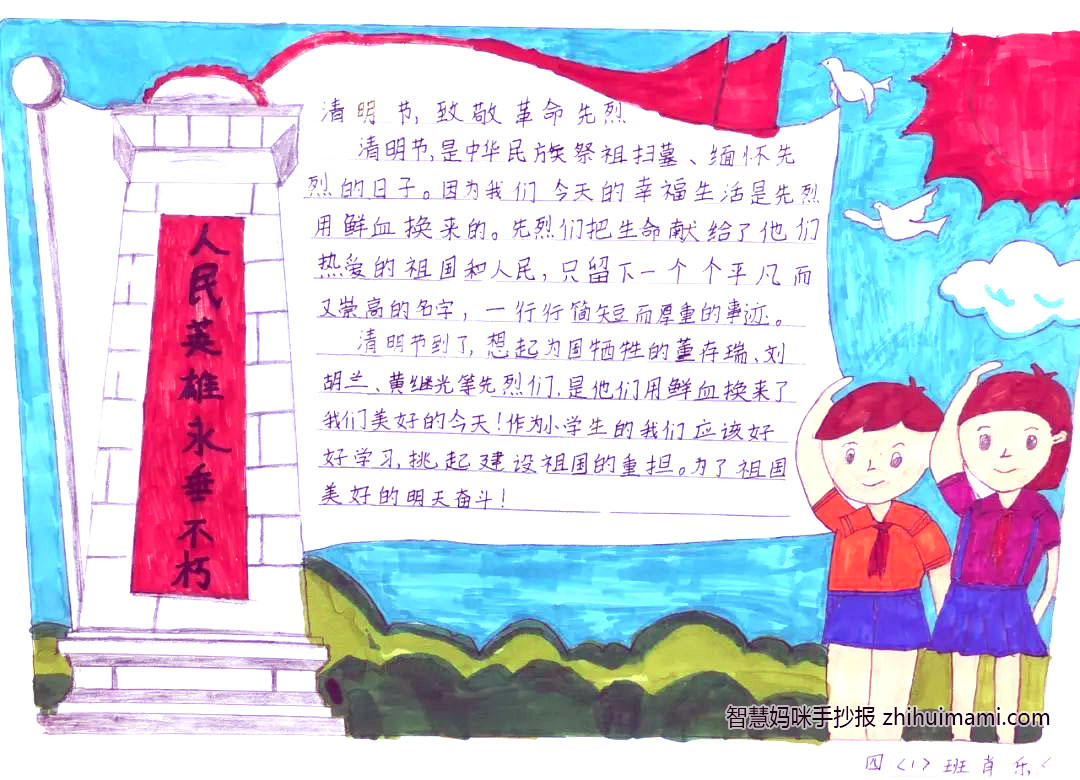 人民英雄永垂不朽
清明节,致敬革命先烈
清明节,是中华民族祭祖扫墓、缅怀先
烈的日子。因为我们今天的幸福生活是先烈
用鲜血换来的。先烈们把生命献给了他们
热爱的祖国和人民,只留下一个个平凡而
又崇高的名字,一行行简短而厚重的事迹。
清明节到了,想起为国牺牲的董存瑞、刘
胡兰、黄继光等先烈们,是他们用鲜血换来了
我们美好的今天!作为小学生的我们应该好
好学习,挑起建设祖国的重担。为了祖国
美好的明天奋斗!
智慧妈咪手抄报 zhihuimami.com
四<1>班肖乐